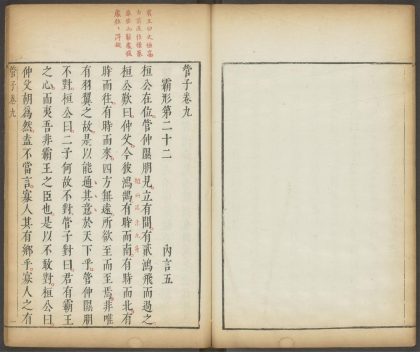 管子卷九
霸形第二十二 內言五
桓公在位管仲隰朋見立有間有貳鴻飛而過之
桓公歎曰仲父今彼鴻鵠有時而南有時而北有
時而往有時而來四方無遠所欲至而至焉非唯
有羽翼之故是以能通其意於天下乎管仲隰朋
不對桓公曰二子何故不對管子對曰君有霸王
之心而夷吾非霸王之臣也是以不敢對桓公曰
仲父胡為然盍不當言寡人其有鄉乎寡人之有
管子卷九